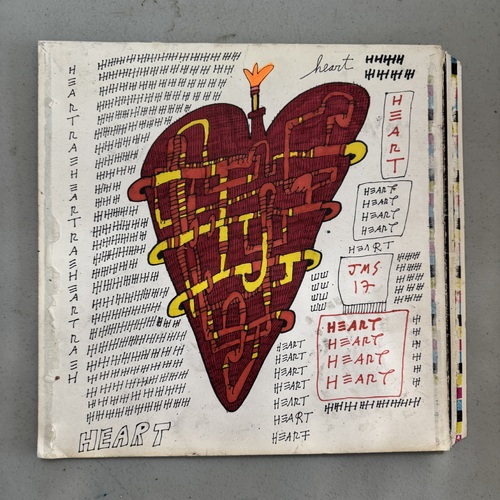 heart
HEART
HEART
HEART
HEART
HEART
HEART
JMS
17
HEART
HEART
HEART
HEART
HEART
HEART
HEART
HEART
HEART
HEART
HEART
HEART